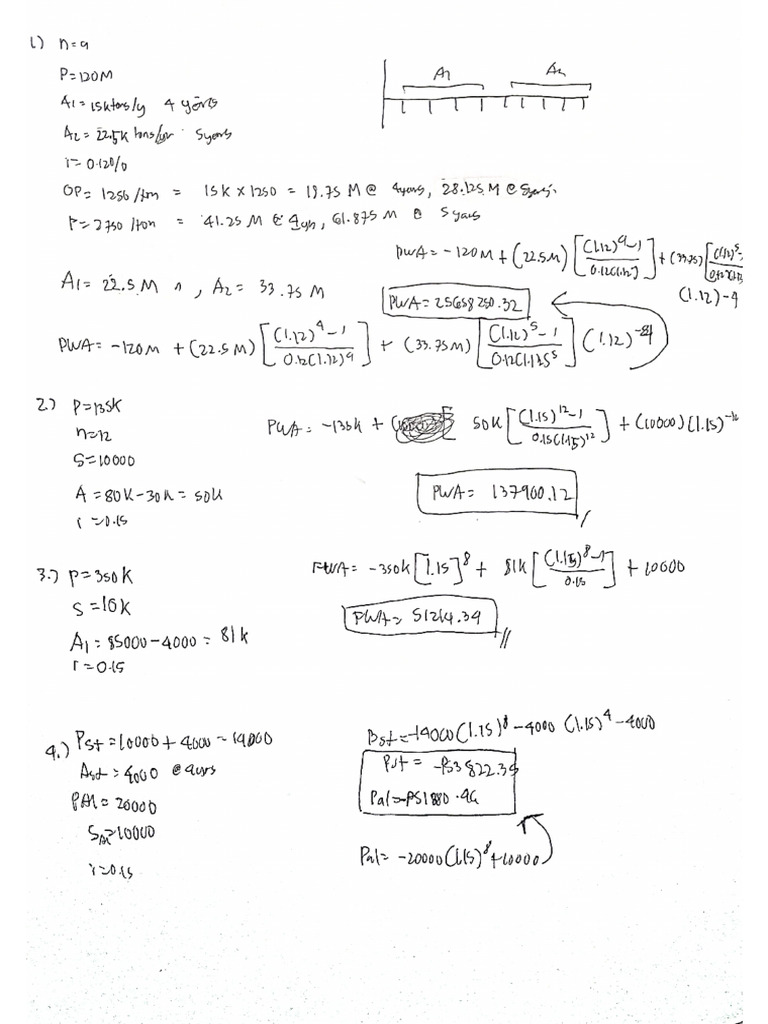 1) n=9
P=120M
A1 = 15k tons/y 4 years
A2 = 22.5k tons/yr 5 years
i = 0.12%
A1 A2
OP = 1250/ton = 15k x 1250 = 18.75 M @ 4years, 28.125 M @ 5years
P = 2750/ton = 41.25 M @ 4yrs, 61.875 M @ 5 years
PWA = -120M + (22.5M) [(1.12)^4-1 / 0.12(1.12)] + (33.75) [(1.12)^5-
(1.12)-4
A1 = 22.5 M, A2 = 33.75 M
PWA = 25658250.32
PWA = -120M + (22.5M) [(1.12)^4-1 / 0.12(1.12)^4] + (33.75M) [(1.12)^5-1 / 0.12(1.12)^5] (1.12)^-4
2.) P=135k
n=12
S=10000
A = 80k-30k = 50k
i=0.15
PWA = -135k + 50k [(1.15)^12-1 / 0.15(1.15)^12] + (10000)(1.15)^-12
PWA = 137900.12
3.) P=350k
S=10k
A1 = 85000-4000 = 81k
i=0.15
FWA = -350k [1.15]^8 + 81k [(1.15)^8-1 / 0.15] + 10000
PWA = 51214.34
4.) Pst = 10000 + 4000 = 14000
Ast = 4000 @ 4yrs
PAl = 20000
SAl = 10000
i=0.15
Pst = -14000(1.15)^8 - 4000 (1.15)^4 - 4000
Pst = -P53822.34
Pal = -P51880.44
Pal = -20000(1.15)^8 + 10000